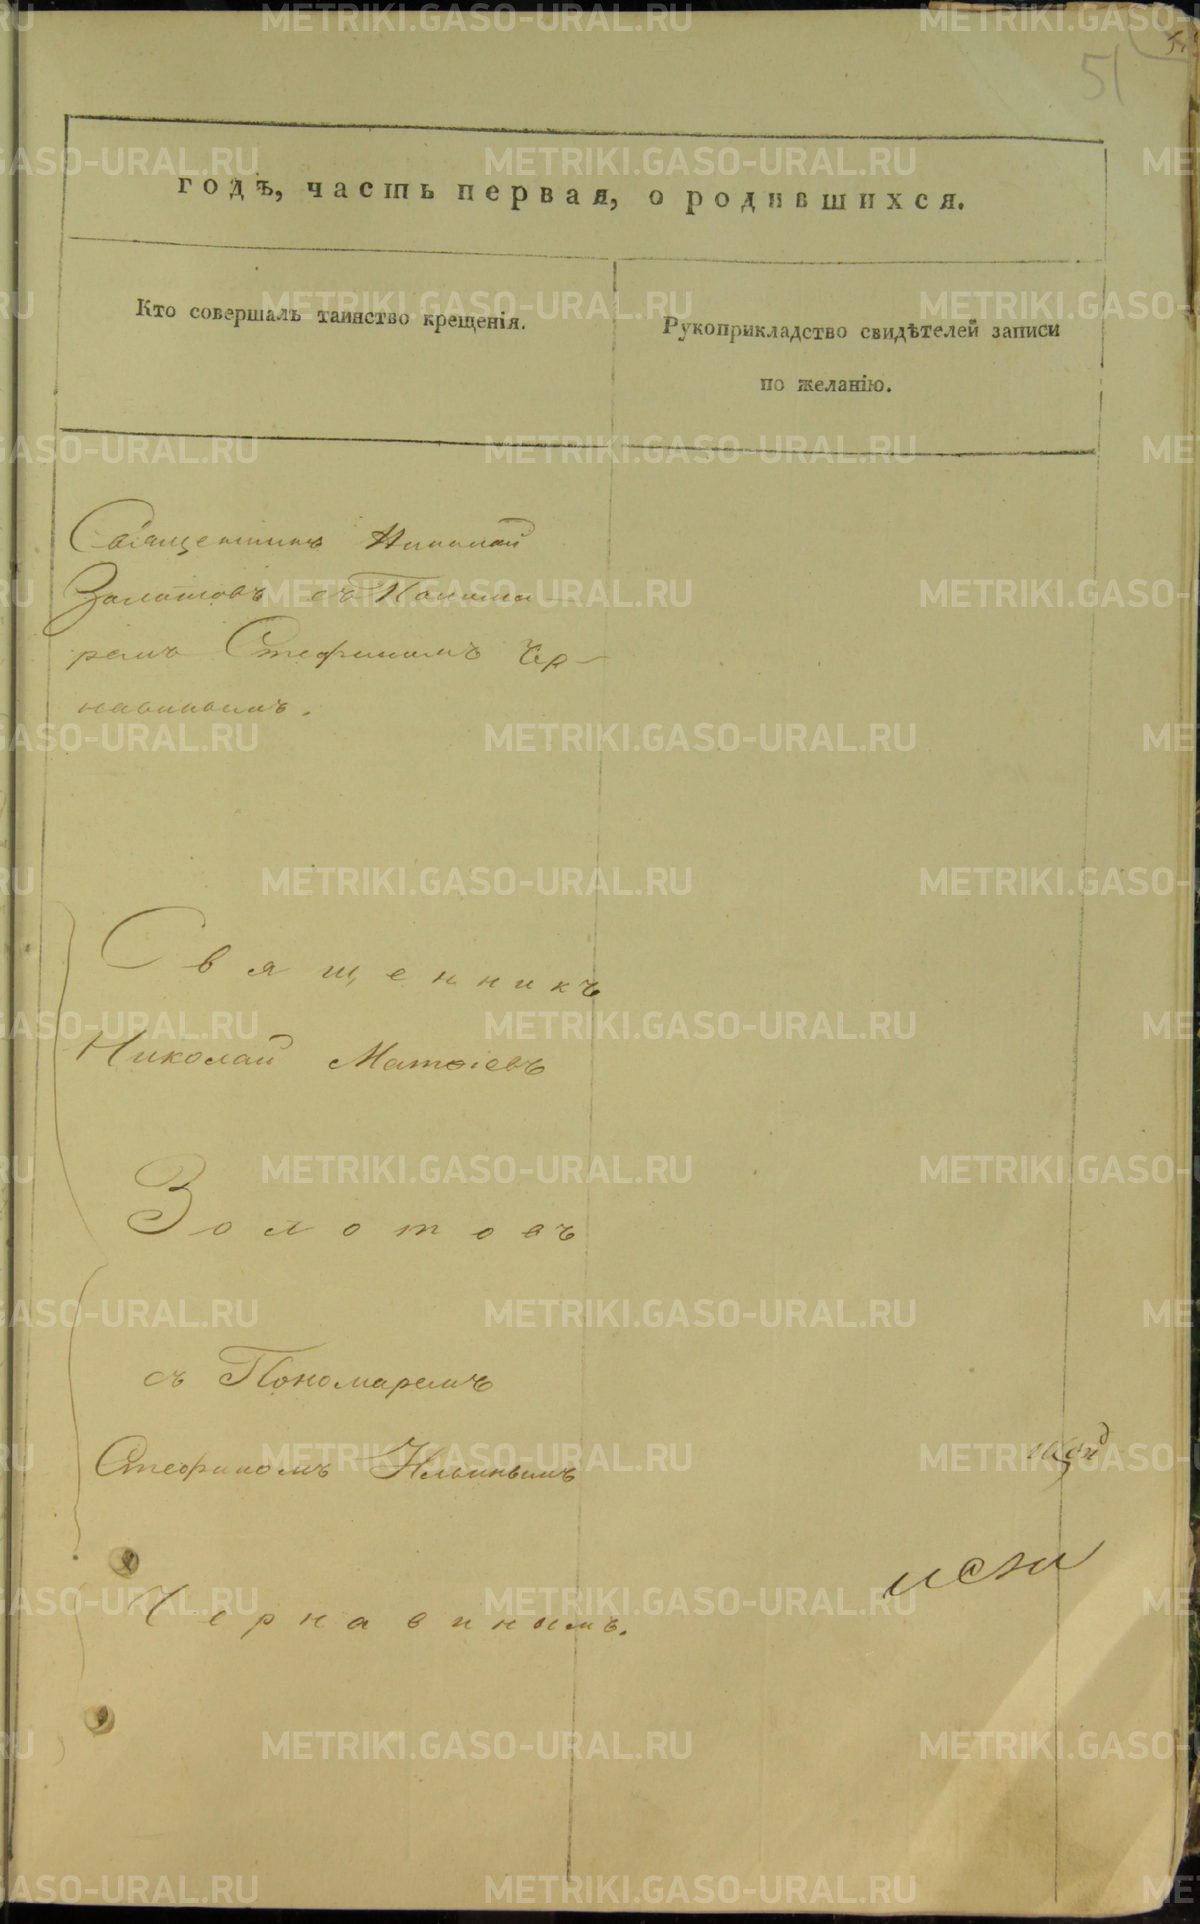 51
годѣ, часть первая, о родившихся.
Кто совершалъ таинство крещенія.
Рукоприкладство свидѣтелей записи
по желанію.
Священникъ Николай
Золотовъ съ Понома-
ремъ Стефаномъ Чер-
навинымъ.
Священникъ
Николай Матѳіевъ
Золотовъ
съ Пономаремъ
Стефаномъ Ильинымъ
Чернавинымъ.
METRIKI.GASO-URAL.RU